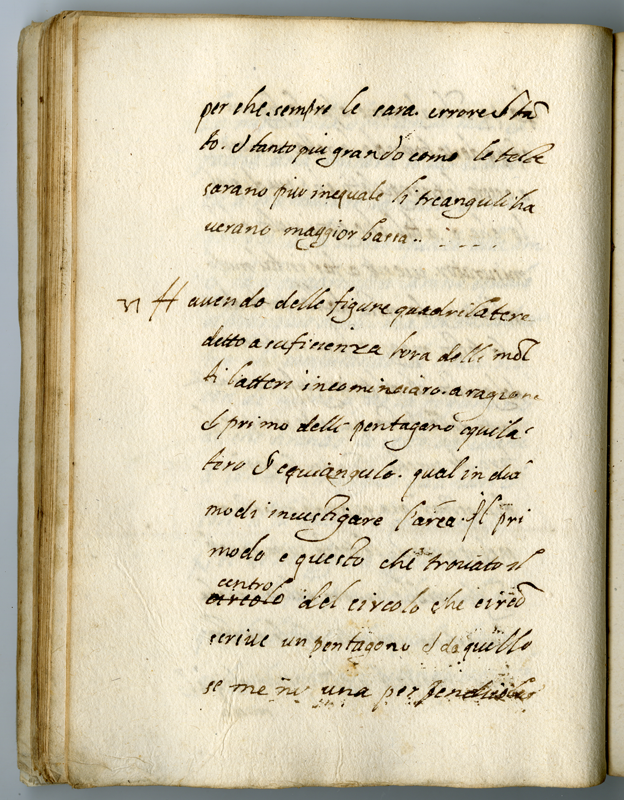 per che sempre le sara errore & tā
to. & tanto piu grando como le telle
sarano piu inequale li treanguli ha
uerano maggior bassa..
Hauendo delle figure quadrilatere
detto a suficienza hora delli mol
ti latteri incominciaro. a ragione
& primo delli pentagano equila
tero & equiangulo. qual in dia
modi inuestigare l'area. Il pri
modo e questo che trouato il
centro
circolo del circolo che circō
scriue un pentagono & da quello
se meni una perpendicolar